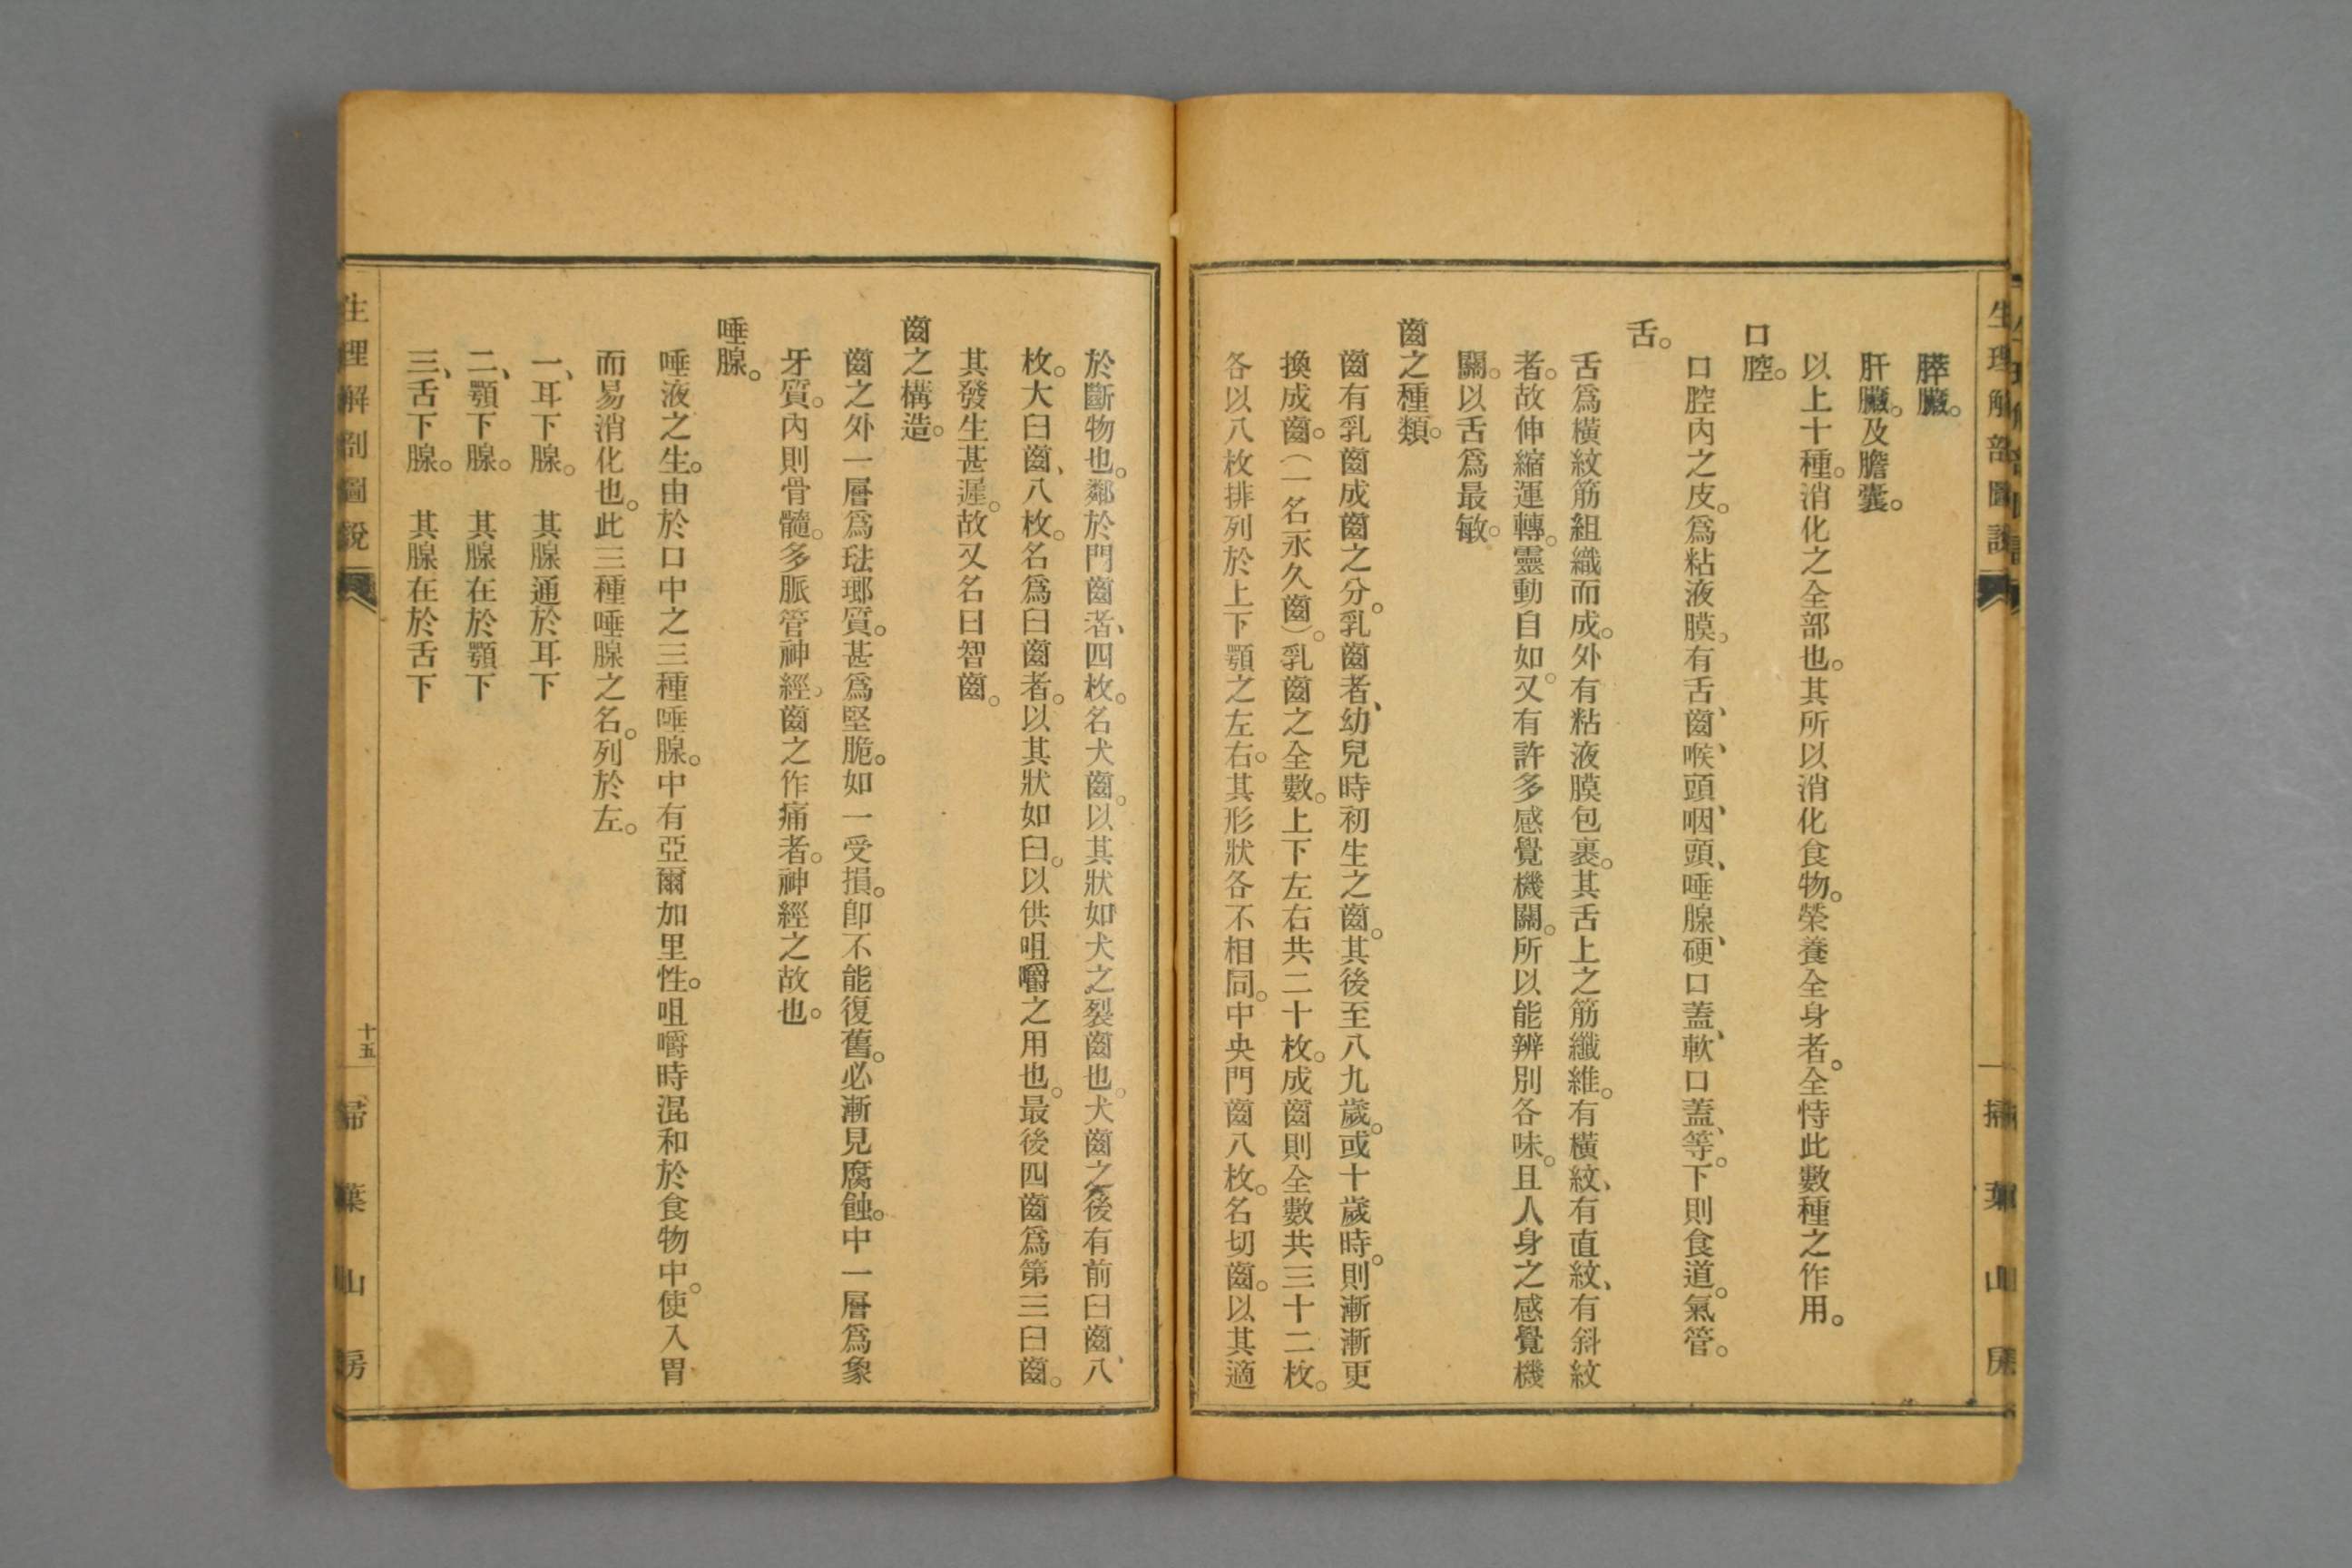 生理解剖圖說
掃葉山房
膵臟。
肝臟。及膽囊。
以上十種。消化之全部也。其所以消化食物。榮養全身者。全恃此數種之作用。
口腔。
口腔內之皮。爲粘液膜。有舌、齒、喉頭、咽頭、唾腺、硬口蓋、軟口蓋、等。下則食道。氣管。
舌。
舌爲橫紋筋組織而成。外有粘液膜包裹。其舌上之筋纖維。有橫紋、有直紋、有斜紋
者。故伸縮運轉。靈動自如。又有許多感覺機關。所以能辨別各味。且人身之感覺機
關。以舌爲最敏。
齒之種類。
齒有乳齒成齒之分。乳齒者、幼兒時初生之齒。其後至八九歲。或十歲時。則漸漸更
換成齒。（一名永久齒）。乳齒之全數。上下左右共二十枚。成齒則全數共三十二枚。
各以八枚排列於上下顎之左右。其形狀各不相同。中央門齒八枚。名切齒。以其適
於斷物也。鄰於門齒者、四枚。名犬齒。以其狀如犬之裂齒也。犬齒之後有前臼齒、八
枚。大臼齒、八枚。名爲臼齒者。以其狀如臼。以供咀嚼之用也。最後四齒爲第三臼齒。
其發生甚遲。故又名曰智齒。
齒之構造。
齒之外一層爲琺瑯質。甚爲堅脆。如一受損。卽不能復舊。必漸見腐蝕。中一層爲象
牙質。內則骨髓。多脈管神經。齒之作痛者。神經之故也。
唾腺。
唾液之生。由於口中之三種唾腺。中有亞爾加里性。咀嚼時混和於食物中。使入胃
而易消化也。此三種唾腺之名。列於左。
一、耳下腺。　其腺通於耳下
二、顎下腺。　其腺在於顎下
三、舌下腺。　其腺在於舌下
生理解剖圖說
十五
掃葉山房